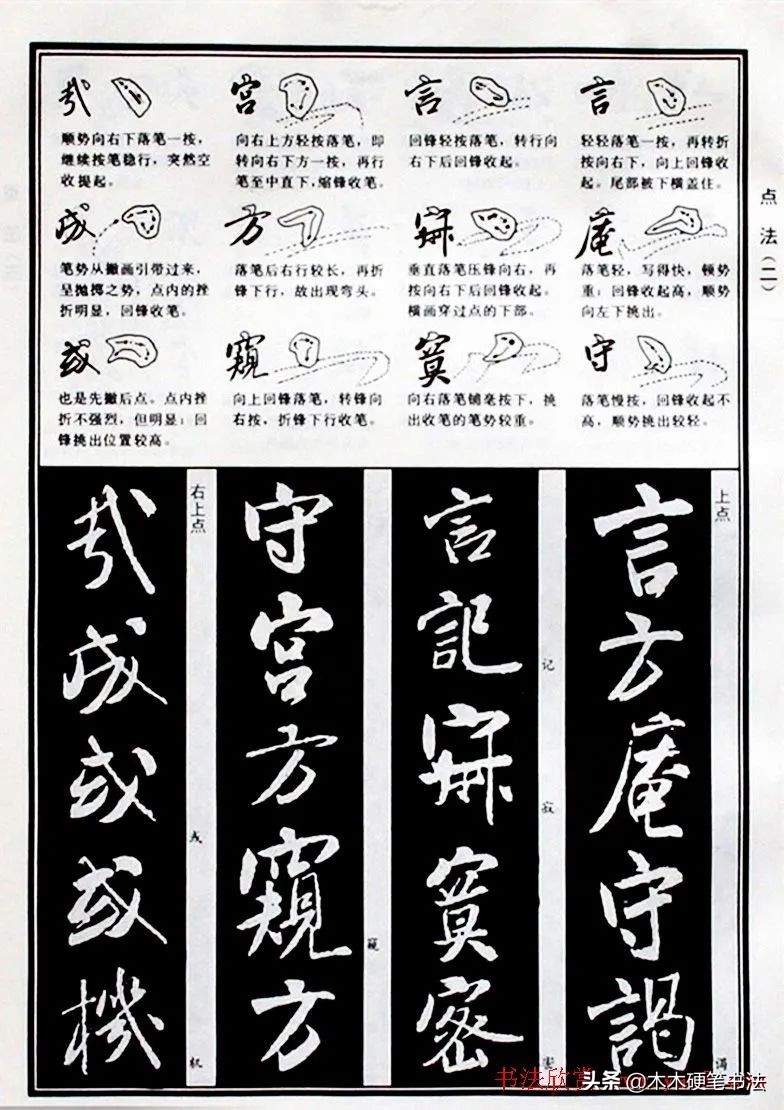 点法（二）
言
轻轻落笔一按，再转折
按向右下，向上回锋收
起。尾部被下横盖住。
庵
落笔轻，写得快，顿势
重；回锋收起高，顺势
向左下挑出。
守
落笔慢按，回锋收起不
高，顺势挑出较轻。
言
回锋轻按落笔，转行向
右下后回锋收起。
寂
垂直落笔压锋向右，再
按向右下后回锋收起。
横画穿过点的下部。
冥
向右落笔铺毫按下，挑
出收笔的笔势较重。
宫
向右上方轻按落笔，即
转向右下方一按，再行
笔至中直下，缩锋收笔。
方
落笔后右行较长，再折
锋下行，故出现弯头。
窥
向上回锋落笔，转锋向
右按，折锋下行收笔。
哉
顺势向右下落笔一按，
继续按笔稳行，突然空
收提起。
成
笔势从撇画引带过来，
呈抛掷之势，点内的挫
折明显，回锋收笔。
或
也是先撇后点。点内挫
折不强烈，但明显；回
锋挑出位置较高。
上点
言方庵守謁
言記寂冥密
记
寂
守宫方窺方
窥
右上点
哉成或或機
机
书法欣赏
头条@木木硬笔书法